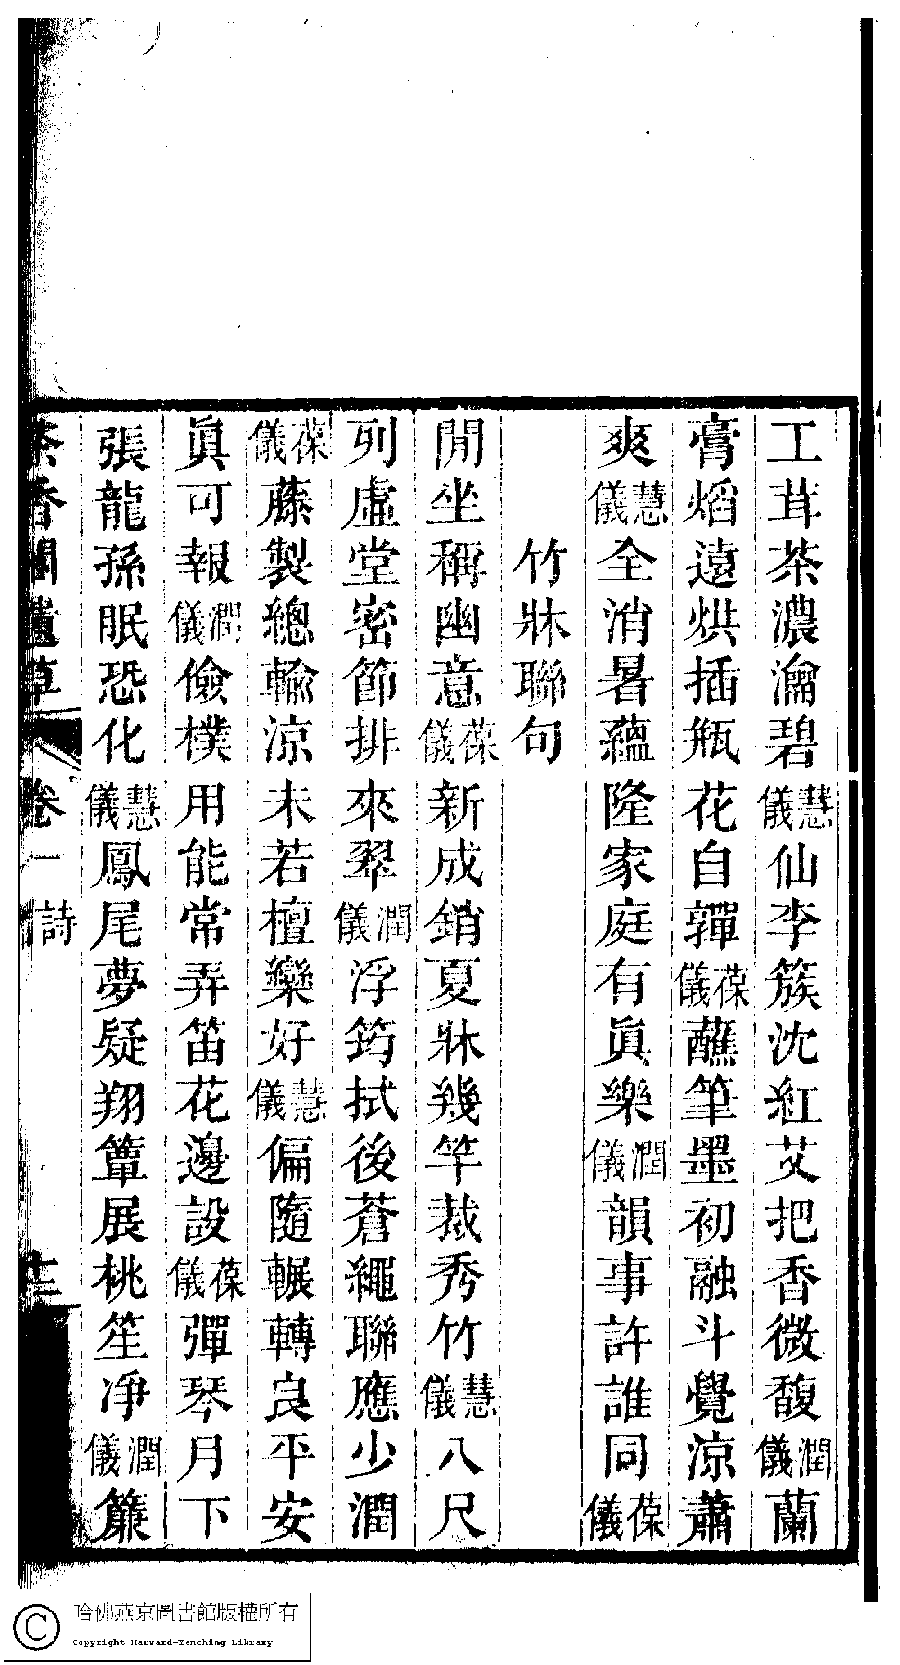 工茸茶濃瀹碧慧儀仙李簇沈紅艾把香微馥潤儀蘭
膏熖遠烘插瓶花自嚲葆儀蘸筆墨初融斗覺涼蕭
爽慧儀全消暑蘊隆家庭有眞樂潤儀韻事許誰同葆儀
竹牀聯句
閒坐稱幽意葆儀新成銷夏牀幾竿裁秀竹慧儀八尺
列虛堂密節排來翠潤儀浮筠拭後蒼繩聯應少潤
葆儀藤製總輸涼未若檀欒好慧儀偏隨輾轉良平安
眞可報潤儀儉樸用能常弄笛花邊設葆儀彈琴月下
張龍孫眠恐化慧儀鳳尾夢疑翔簟展桃笙凈潤儀簾
茶香閣遺草 卷一 詩 十二
哈佛燕京圖書館版權所有
Copyright Harvard-Yenching Library